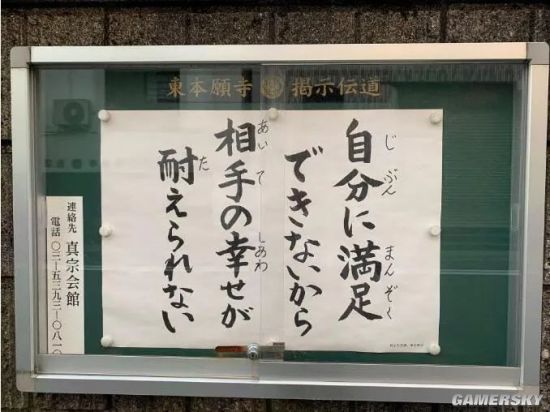 東本願寺 掲示伝道
自分に満足
じぶん まんぞく
できないから
相手の幸せが
あいて しあわ
耐えられない
た
連絡先 真宗会館
電話〇三―五三九三―〇八一〇
GAMERSKY